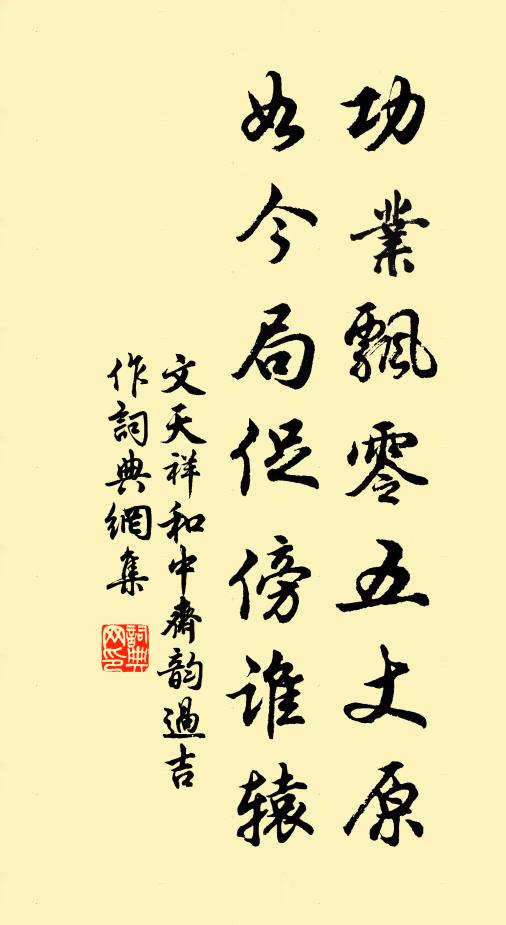 功業飄零五丈原
如今局促傍谁辕
文天祥和中齋韵過吉
作詞典網集
詞典網印